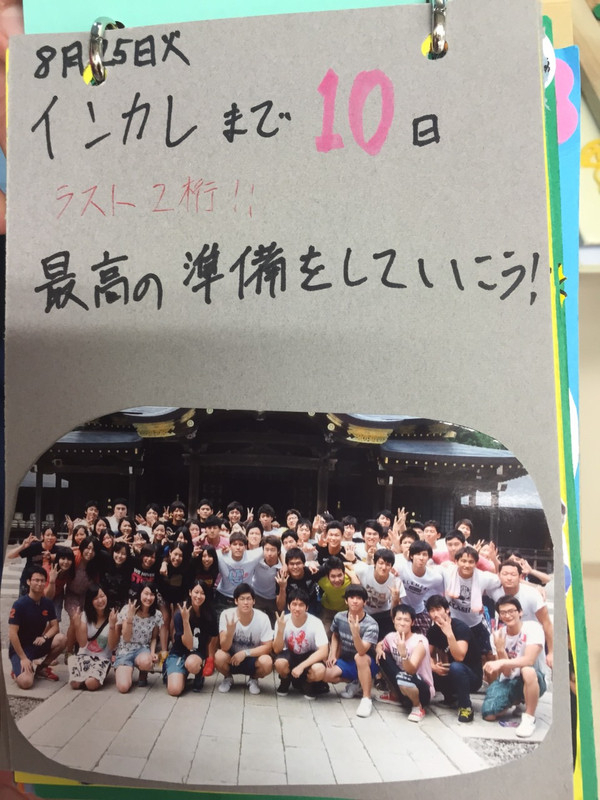 8月25日火
インカレまで 10日
ラスト2桁!!
最高の準備をしていこう!